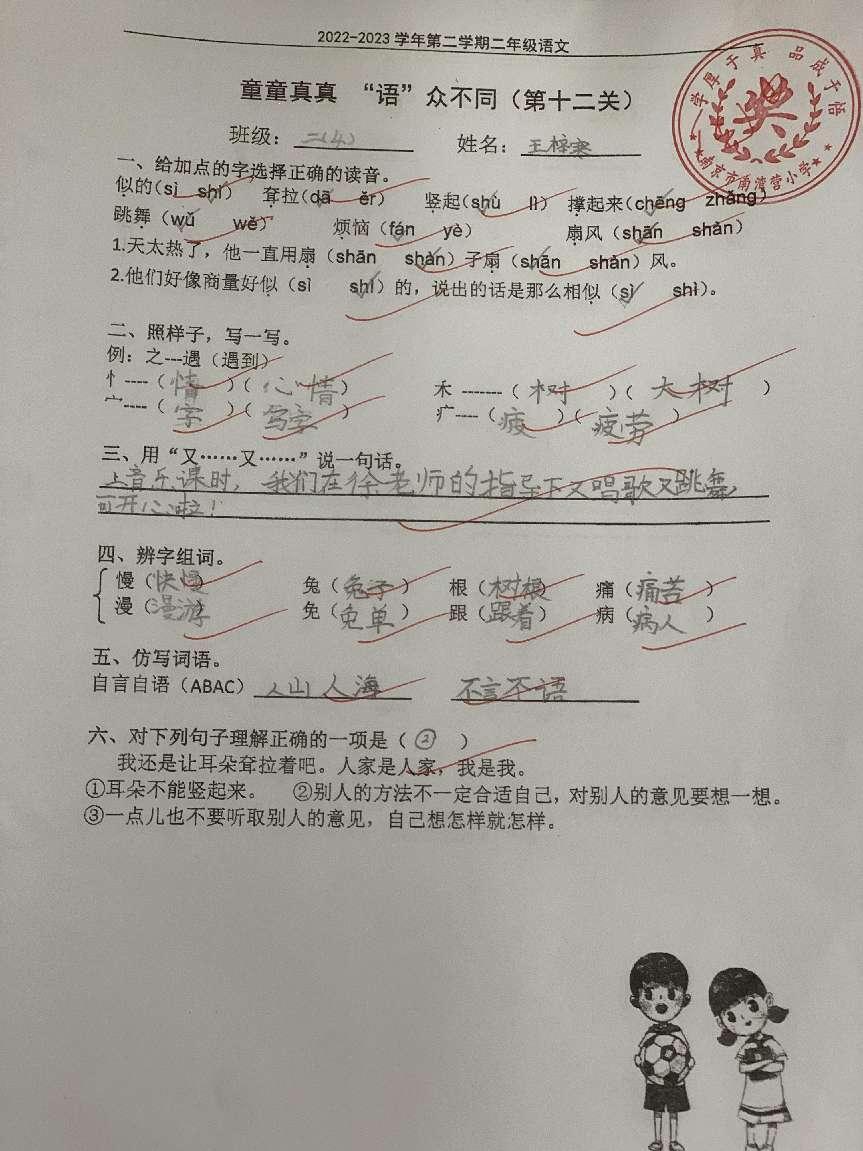 2022-2023学年第二学期二年级语文
童童真真 “语”众不同(第十二关)
学厚于真 品成于悟
奖
南京市南湾营小学
班级:二(4) 姓名:王梓寒
一、给加点的字选择正确的读音。
似的(sì shì) 耷拉(dā ěr) 竖起(shù lì) 撑起来(chēng zhǎng)
跳舞(wǔ wě) 烦恼(fán yè) 扇风(shān shàn)
1.天太热了,他一直用扇(shān shàn)子扇(shān shàn)风。
2.他们好像商量好似(sì shì)的,说出的话是那么相似(sì shì)。
二、照样子,写一写。
例:之---遇(遇到)
忄----(情)(心情) 木 -------(树)(大树)
宀----(字)(写字) 疒----(疲)(疲劳)
三、用“又……又……”说一句话。
上音乐课时,我们在徐老师的指导下又唱歌又跳舞,
可开心啦!
四、辨字组词。
慢(快慢) 兔(兔子) 根(树根) 痛(痛苦)
漫(漫游) 免(免单) 跟(跟着) 病(病人)
五、仿写词语。
自言自语(ABAC) 人山人海 不言不语
六、对下列句子理解正确的一项是(②)
我还是让耳朵耷拉着吧。人家是人家,我是我。
①耳朵不能竖起来。 ②别人的方法不一定合适自己,对别人的意见要想一想。
③一点儿也不要听取别人的意见,自己想怎样就怎样。